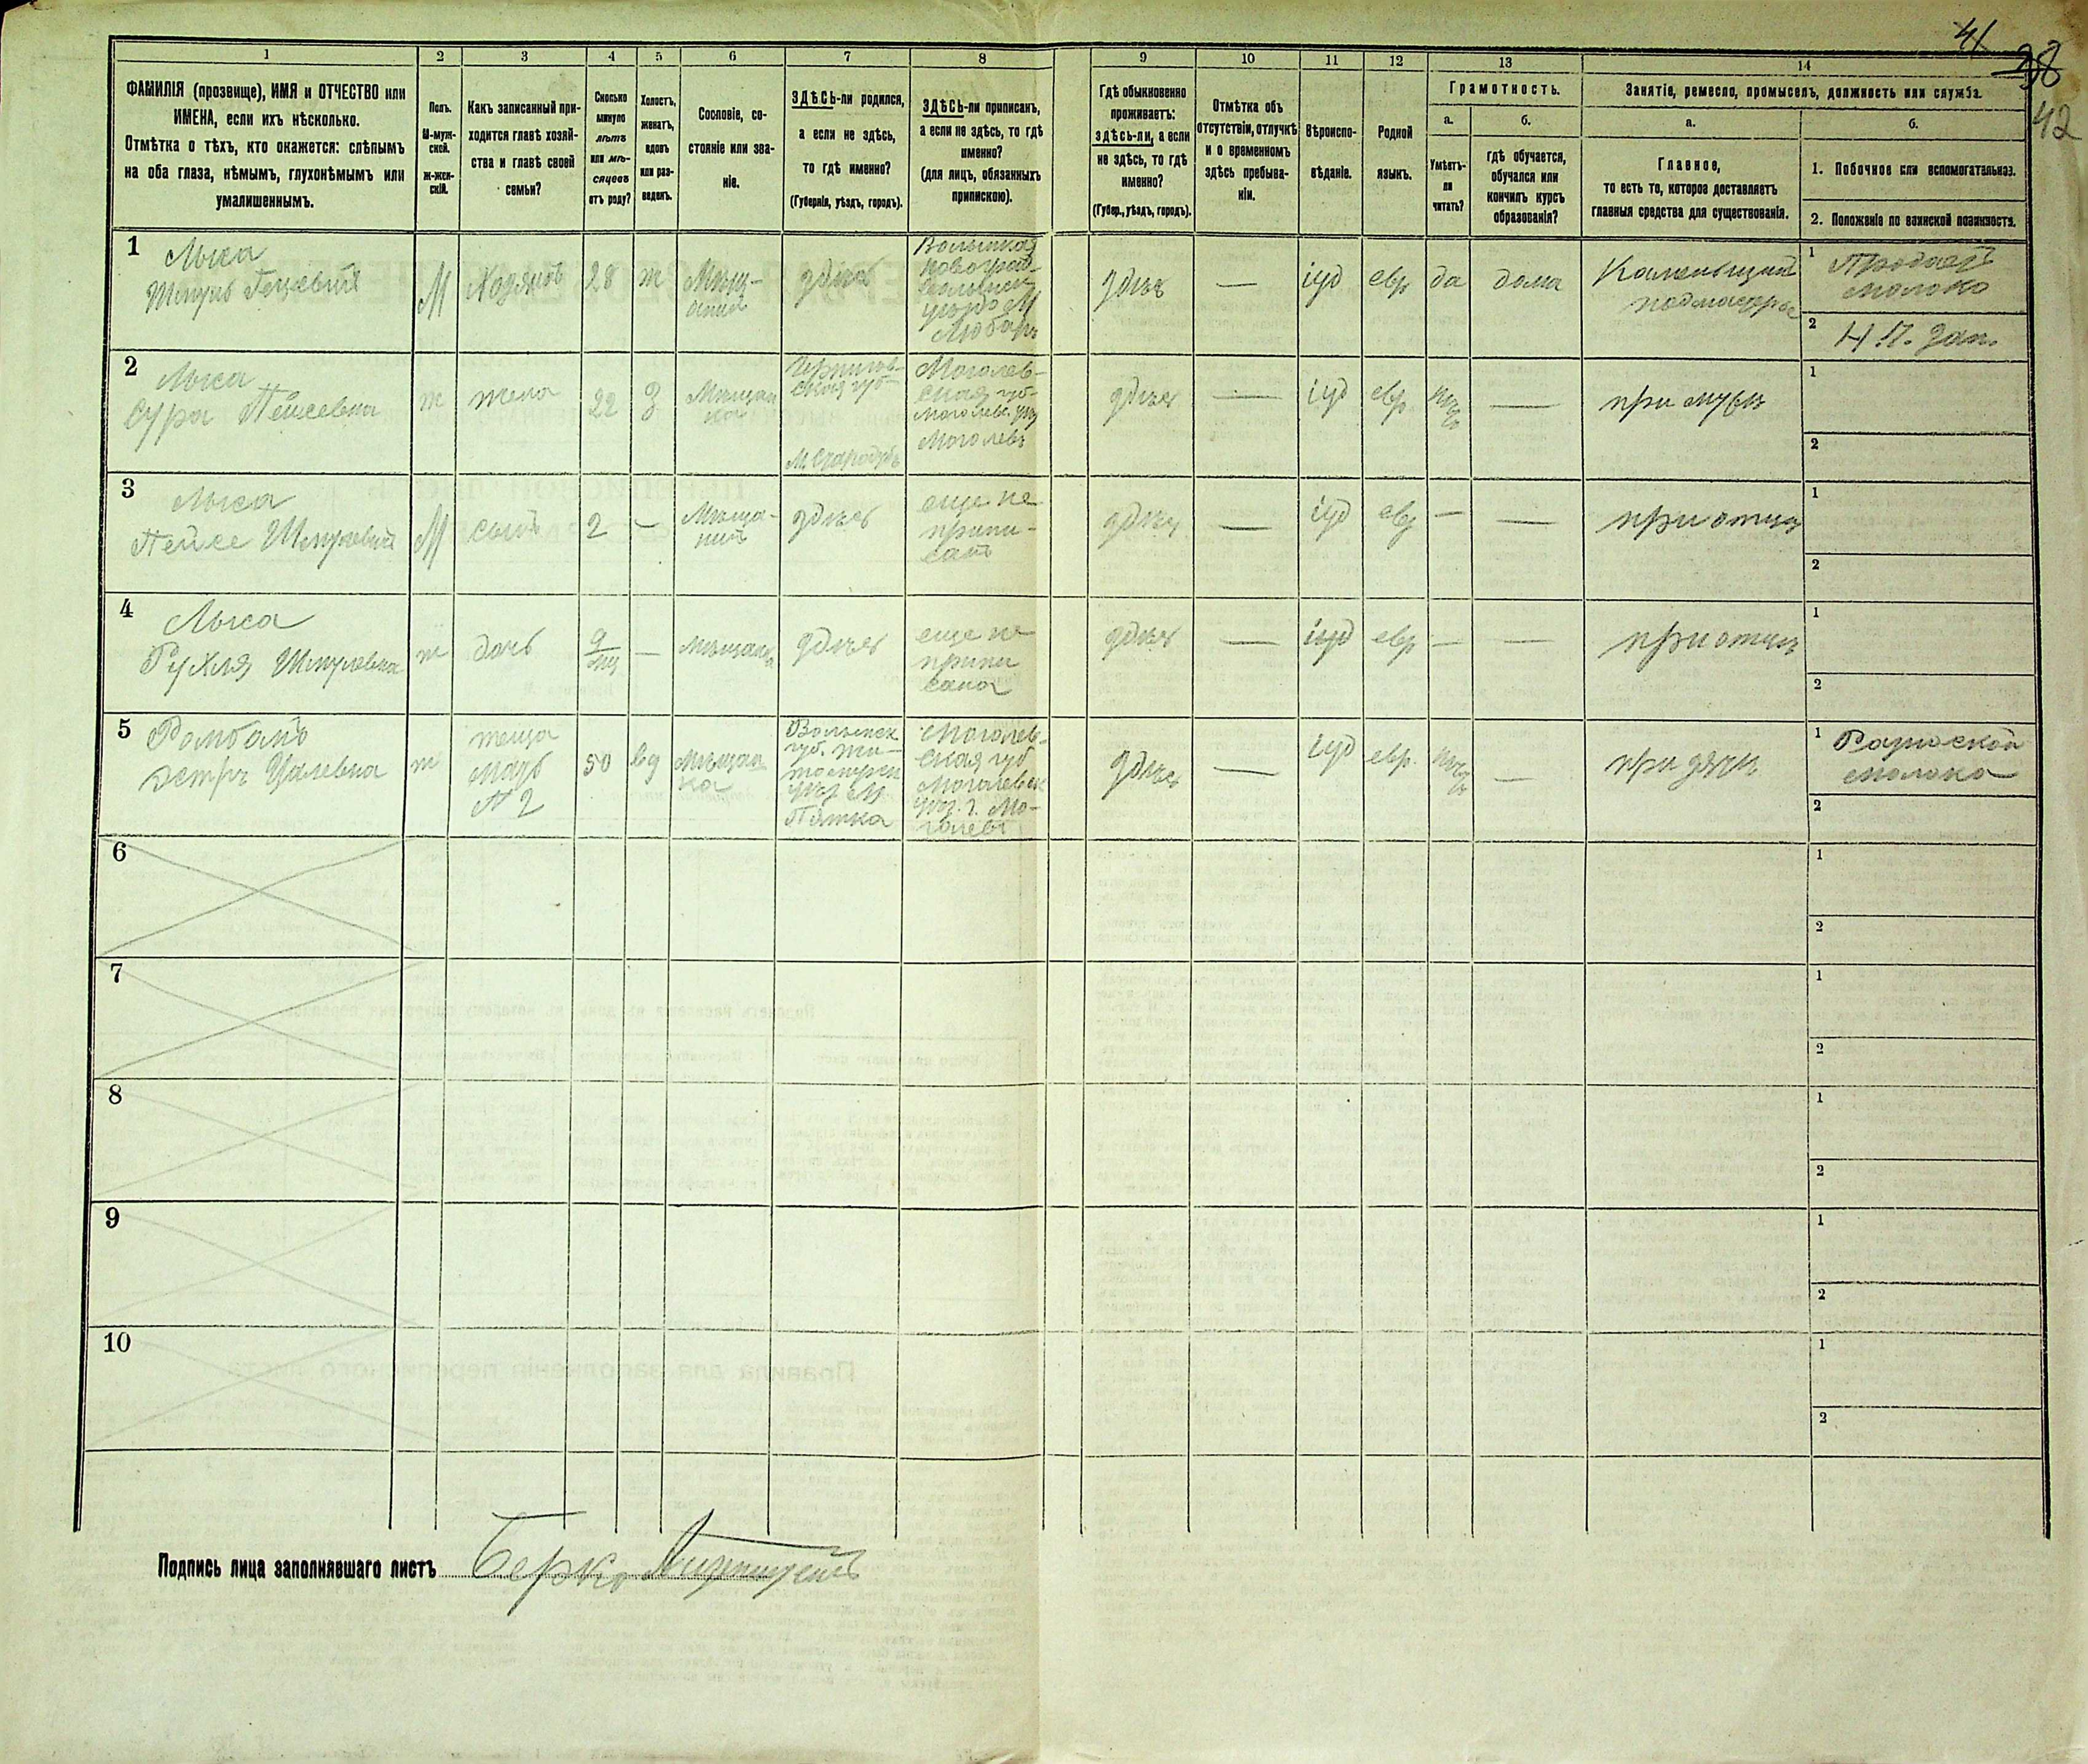 41
38
42
1
2
3
4
5
6
7
8
9
10
11
12
13
14
ФАМИЛІЯ (прозвище), ИМЯ и ОТЧЕСТВО или
ИМЕНА, если ихъ нѣсколько.
Отмѣтка о тѣхъ, кто окажется: слѣпымъ
на оба глаза, нѣмымъ, глухонѣмымъ или
умалишеннымъ.
Полъ.
М-муж-
ской.
Ж-жен-
скій.
Какъ записанный при-
ходится главѣ хозяй-
ства и главѣ своей
семьи?
Сколько
минуло
лѣтъ
или мѣ-
сяцевъ
отъ роду?
Холостъ,
женатъ,
вдовъ
или раз-
веденъ.
Сословіе, со-
стояніе или зва-
ніе.
ЗДѢСЬ-ли родился,
а если не здѣсь,
то гдѣ именно?
(Губернія, уѣздъ, городъ).
ЗДѢСЬ-ли приписанъ,
а если не здѣсь, то гдѣ
именно?
(для лицъ, обязанныхъ
припискою).
Гдѣ обыкновенно
проживаетъ:
здѣсь-ли, а если
не здѣсь, то гдѣ
именно?
(Губер., уѣздъ, городъ).
Отмѣтка объ
отсутствіи, отлучкѣ
и о временномъ
здѣсь пребыва-
ніи.
Вѣроиспо-
вѣданіе.
Родной
языкъ.
Грамотность.
а.
Умѣетъ-
ли
читать?
б.
гдѣ обучается,
обучался или
кончилъ курсъ
образованія?
Занятіе, ремесло, промыселъ, должность или служба.
а.
Главное,
то есть то, которое доставляетъ
главныя средства для существованія.
б.
1. Побочное или вспомогательное.
2. Положеніе по воинской повинности.
1
Лыса
Шмуль
М
28
ж
Мѣщ-
анин
здѣсь
Волынская
Новоград-
М
Любар
здѣсь
—
іуд
евр
да
дома
Каменьщик
подмастрье
1
Продает
молоко
2
Н. П. Зап.
2
Лыса
Сура Пейсевна
ж
жена
22
З
Мѣщан
ка
Чернигов-
ская губ-
М. Стародубъ
Могилев-
ская губ-
Могилевъ
здѣсь
—
іуд
евр
—
при мужѣ
1
2
3
Лыса
Пейсе
М
сынъ
2
—
Мѣща-
нинъ
здѣсь
еще не
припи-
санъ
здѣсь
—
іуд
евр
—
—
при отцѣ
1
2
4
Лыса
Рухля Шмулевна
ж
дочь
9
мц
—
мѣщанка
здѣсь
еще не
припи
сана
здѣсь
—
іуд
евр
—
—
при отцѣ
1
2
5
Эстръ
ж
теща
мать
№ 2
50
вд
Мѣщан
ка
Волынск
губ. Жи-
томирск
уѣз М
Пятка
Могилев-
ская губ
Могилевск
уѣз. г. Мо-
гилевъ
здѣсь
—
іуд
евр.
—
при зятѣ
1
молока
2
6
1
2
7
1
2
8
1
2
9
1
2
10
1
2
Подпись лица заполнявшаго листъ Берко